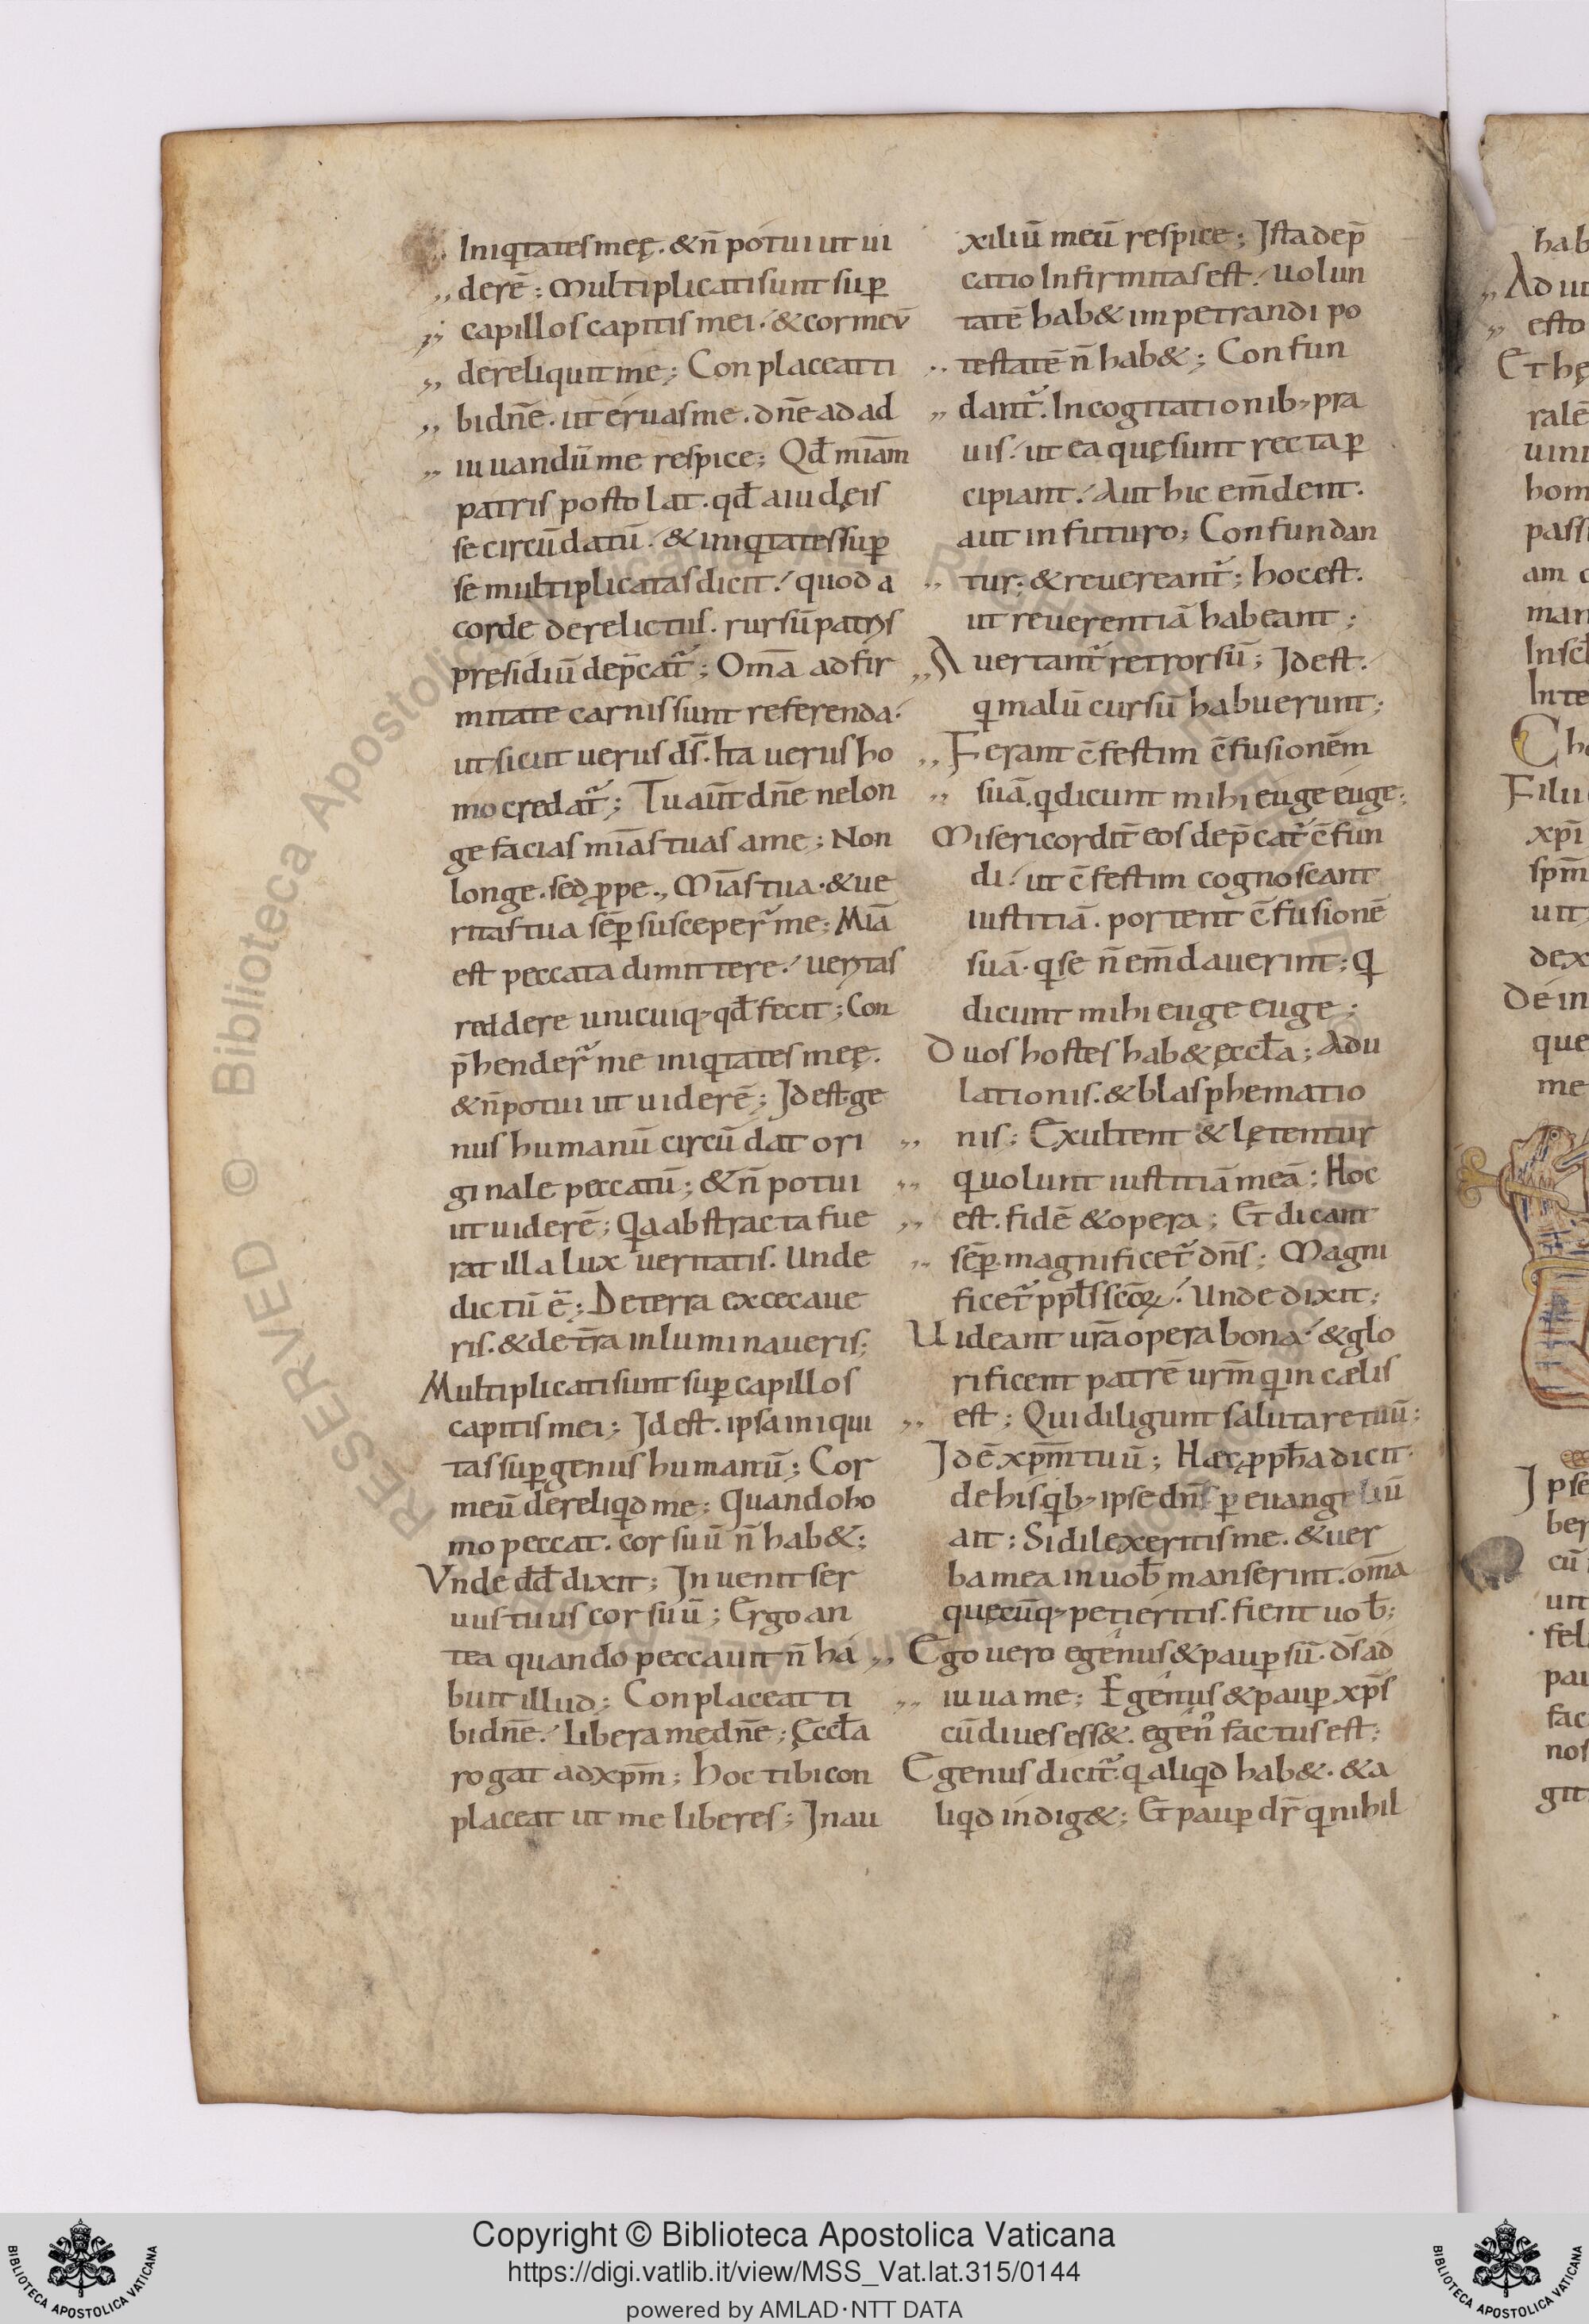 Iniqtates meę. & n̄ potui ut ui
derē; Multiplicati sunt sup̲
capillos capitis mei. & cor meū
dereliquit me; Conplaceat ti
bi dn̄e. ut eruas me. dn̄e ad ad
iuuandū me respice; Qđ miam̄
patris postolat. qđ a iudęis
se circūdatū. & iniqtates sup̲
se multiplicatas dicit. quod a
corde derelictus. rursū patris
pręsidiū dep̄cat᷑; Om̄a ad fir
mitate carnis sunt referenda.
ut sicut uerus d̄s. Ita uerus ho
mo credat᷑; Tu aūt dn̄e ne lon
ge facias mīas tuas a me; Non
longe. sed ꝓpe., Mīas tua. & ue
ritas tua sēp̲ susceper᷑ me; Miā
est peccata dimittere. ueritas
reddere unicuiq; qđ fecit; Con
p̄hender᷑ me iniqtates meę.
& n̄ potui ut uiderē; Id est. ge
nus humanū circūdat ori
ginale peccatū; & n̄ potui
ut uiderē; Qa abstracta fue
rat illa lux ueritatis. Unde
dictū ē; De terra excecaue
ris. & de tr̄a inluminaueris;
Multiplicati sunt sup̲ capillos
capitis mei; Id est. ipsa iniqui
tas sup̲ genus humanū; Cor
meū dereliqd me; Quando ho
mo peccat. cor suū n̄ hab&;
Vnde đđ dixit; Inuenit ser
uus tuus cor suū; Ergo an
tea quando peccauit n̄ ha
buit illud; Conplaceat ti
bi dn̄e. Libera me dn̄e; Ęccła
rogat ad xp̄m; Hoc tibi con
placeat ut me liberes; In au
xiliū meū respice; Ista dep̄
catio Infirmitas est. uolun
tatē hab& impetrandi po
testatē n̄ hab&; Confun
dant᷑. In cogitationib; pra
uis. ut ea quę sunt recta p̲
cipiant. Aut hic em̄dent.
aut in futuro; Confundan
tur; & reuereant᷑; hoc est.
ut reuerentiā habeant;
Auertant᷑ retrorsū; Id est.
q malū cursū habuerunt;
Ferant c̄festim c̄fusionēm
suā. q dicunt mihi euge euge;
Misericordit̄ eos dep̄cat᷑ c̄fun
di. ut c̄festim cognoscant
iustitiā. portent c̄fusionē
suā. q se n̄ em̄dauerint; q
dicunt mihi euge euge;
Duos hostes hab& ęccła; Adu
lationis. & blasphematio
nis; Exultent & lętentur
q uolunt iustitiā meā; Hoc
est. fidē & opera; Et dicant
sēp̲. magnificet᷑ dn̄s; Magni
ficet᷑ ppłs sc̄oꝝ. Unde dixit;
Uideant ur̄a opera bona. & glo
rificent patrē urm̄ q in cælis
est; Qui diligunt salutare tuū;
Id ē xp̄m tuū; Hæc ꝓpħa dicit.
de his qb; ipse dn̄s p̲ euangeliū
ait; Si dilexeritis me. & uer
ba mea in uob̄ manserint. om̄a
quęcūq; petieritis. fient uob̄;
Ego uero egenus & paup̲ sū. d̄s ad
iuua me; Egenus & paup̲ xp̄s
cū diues ess&. egen᷒ factus est;
Egenus dicit᷑. q aliqd hab&. & a
liqd indig&; Et paup̲ dr̄ q nihil
hab
Ad ut
esto
Et hę
ralē
uini
hom
passi
am
man
Insc
Inte
Filu
xp̄i
sp̄m
uit
dex
De in
que
me
Ipse
ber
cū
uit
fel
pau
fac
nos
git
Biblioteca Apostolica Vaticana
ALL RIGHTS RESERVED ©
Copyright © Biblioteca Apostolica Vaticana
https://digi.vatlib.it/view/MSS_Vat.lat.315/0144
powered by AMLAD·NTT DATA
BIBLIOTECA APOSTOLICA VATICANA
BIBLIOTECA APOSTOLICA VATICANA